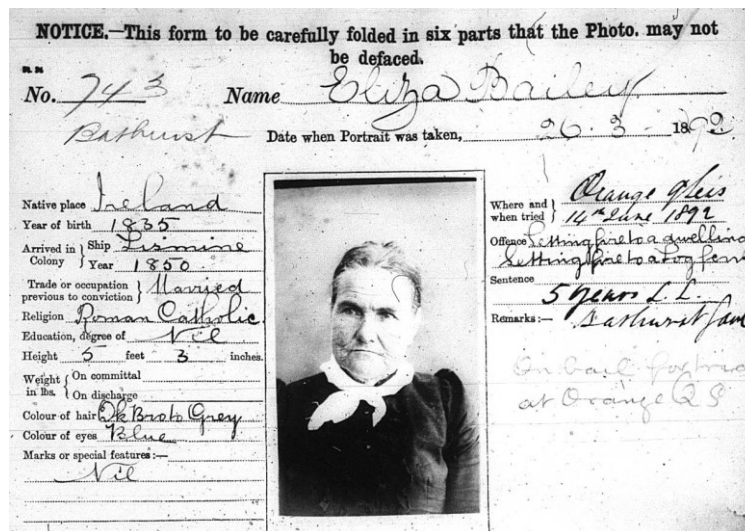 NOTICE.—This form to be carefully folded in six parts that the Photo. may not
be defaced.
No. 743 Name Eliza Bailey
Bathurst Date when Portrait was taken, 26. 3. 1892
Native place Ireland
Year of birth 1835
Arrived in Colony } Ship
Year 1850
Trade or occupation previous to conviction } Married
Religion Roman Catholic
Education, degree of Nil
Height 5 feet 3 inches.
Weight in lbs. { On committal
On discharge
Colour of hair Dk Bro to Grey
Colour of eyes Blue
Marks or special features:—
Nil
Where and when tried } Orange
14th June 1892
Offence Setting fire to a dwelling
Setting fire to a Log
Sentence
5 years L. L.
Remarks:— Bathurst
On bail for trial
at Orange Q S